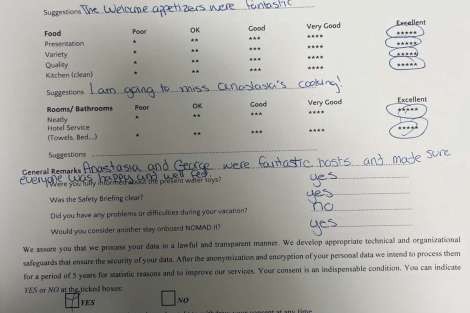 Suggestions The Welcome appetizers were fantastic
Food Poor OK Good Very Good Excellent
Presentation * ** *** **** *****
Variety * ** *** **** *****
Quality * ** *** **** *****
Kitchen (clean) * ** *** **** *****
Suggestions I am going to miss Anastasia's cooking!
Rooms/ Bathrooms Poor OK Good Very Good Excellent
Neatly * ** *** **** *****
Hotel Service
(Towels, Bed...) * ** *** **** *****
Suggestions
General Remarks Anastasia and George were fantastic hosts and made sure
everyone was happy and well fed.
Were you fully informed about the present water toys? yes
Was the Safety Briefing clear? yes
Did you have any problems or difficulties during your vacation? no
Would you consider another stay onboard NOMAD II? yes
We assure you that we process your data in a lawful and transparent manner. We develop appropriate technical and organizational
safeguards that ensure the security of your data. After the anonymization and encryption of your personal data we intend to process them
for a period of 5 years for statistic reasons and to improve our services. Your consent is an indispensable condition. You can indicate
YES or NO at the ticked boxes:
YES NO
your consent at any time